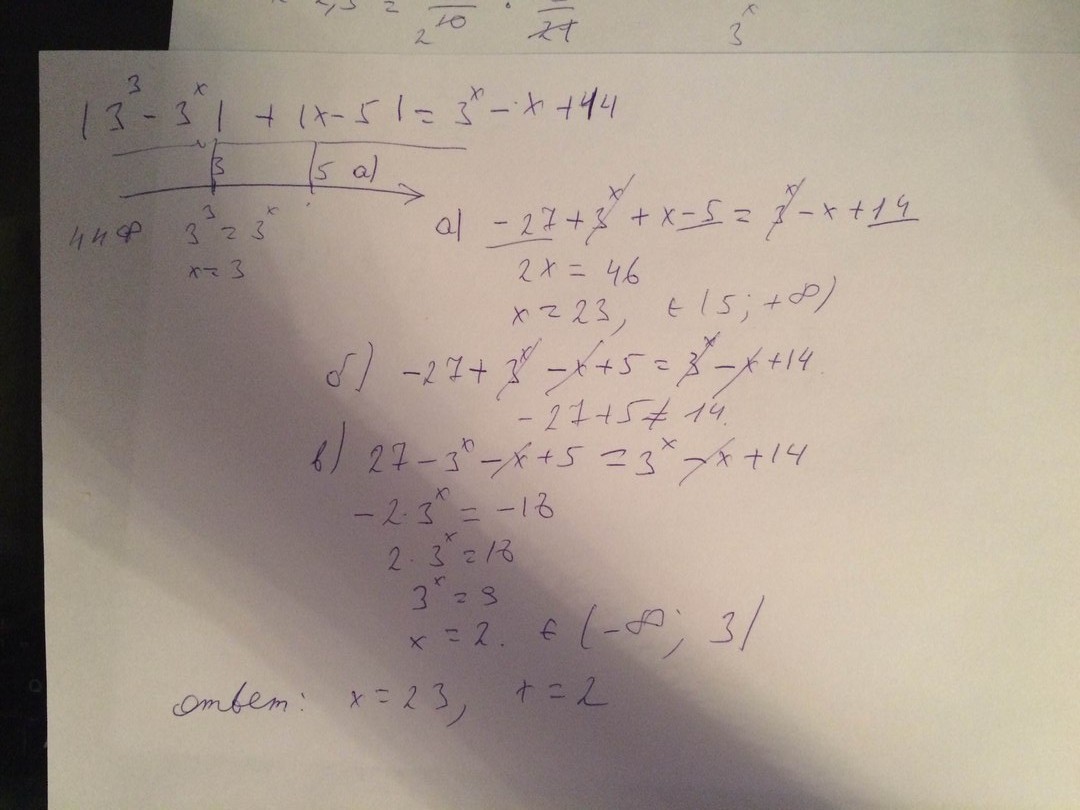 2 10 21 3^x
|3^3 - 3^x| + |x - 5| = 3^x - x + 14
3 5 a)
3^3 = 3^x
x = 3
a) -27 + 3^x + x - 5 = 3^x - x + 14
2x = 46
x = 23, ∈ (5; +∞)
б) -27 + 3^x - x + 5 = 3^x - x + 14.
-27 + 5 ≠ 14.
в) 27 - 3^x - x + 5 = 3^x - x + 14
-2·3^x = -18
2·3^x = 18
3^x = 9
x = 2. ∈ (-∞; 3)
ответ: x = 23, x = 2